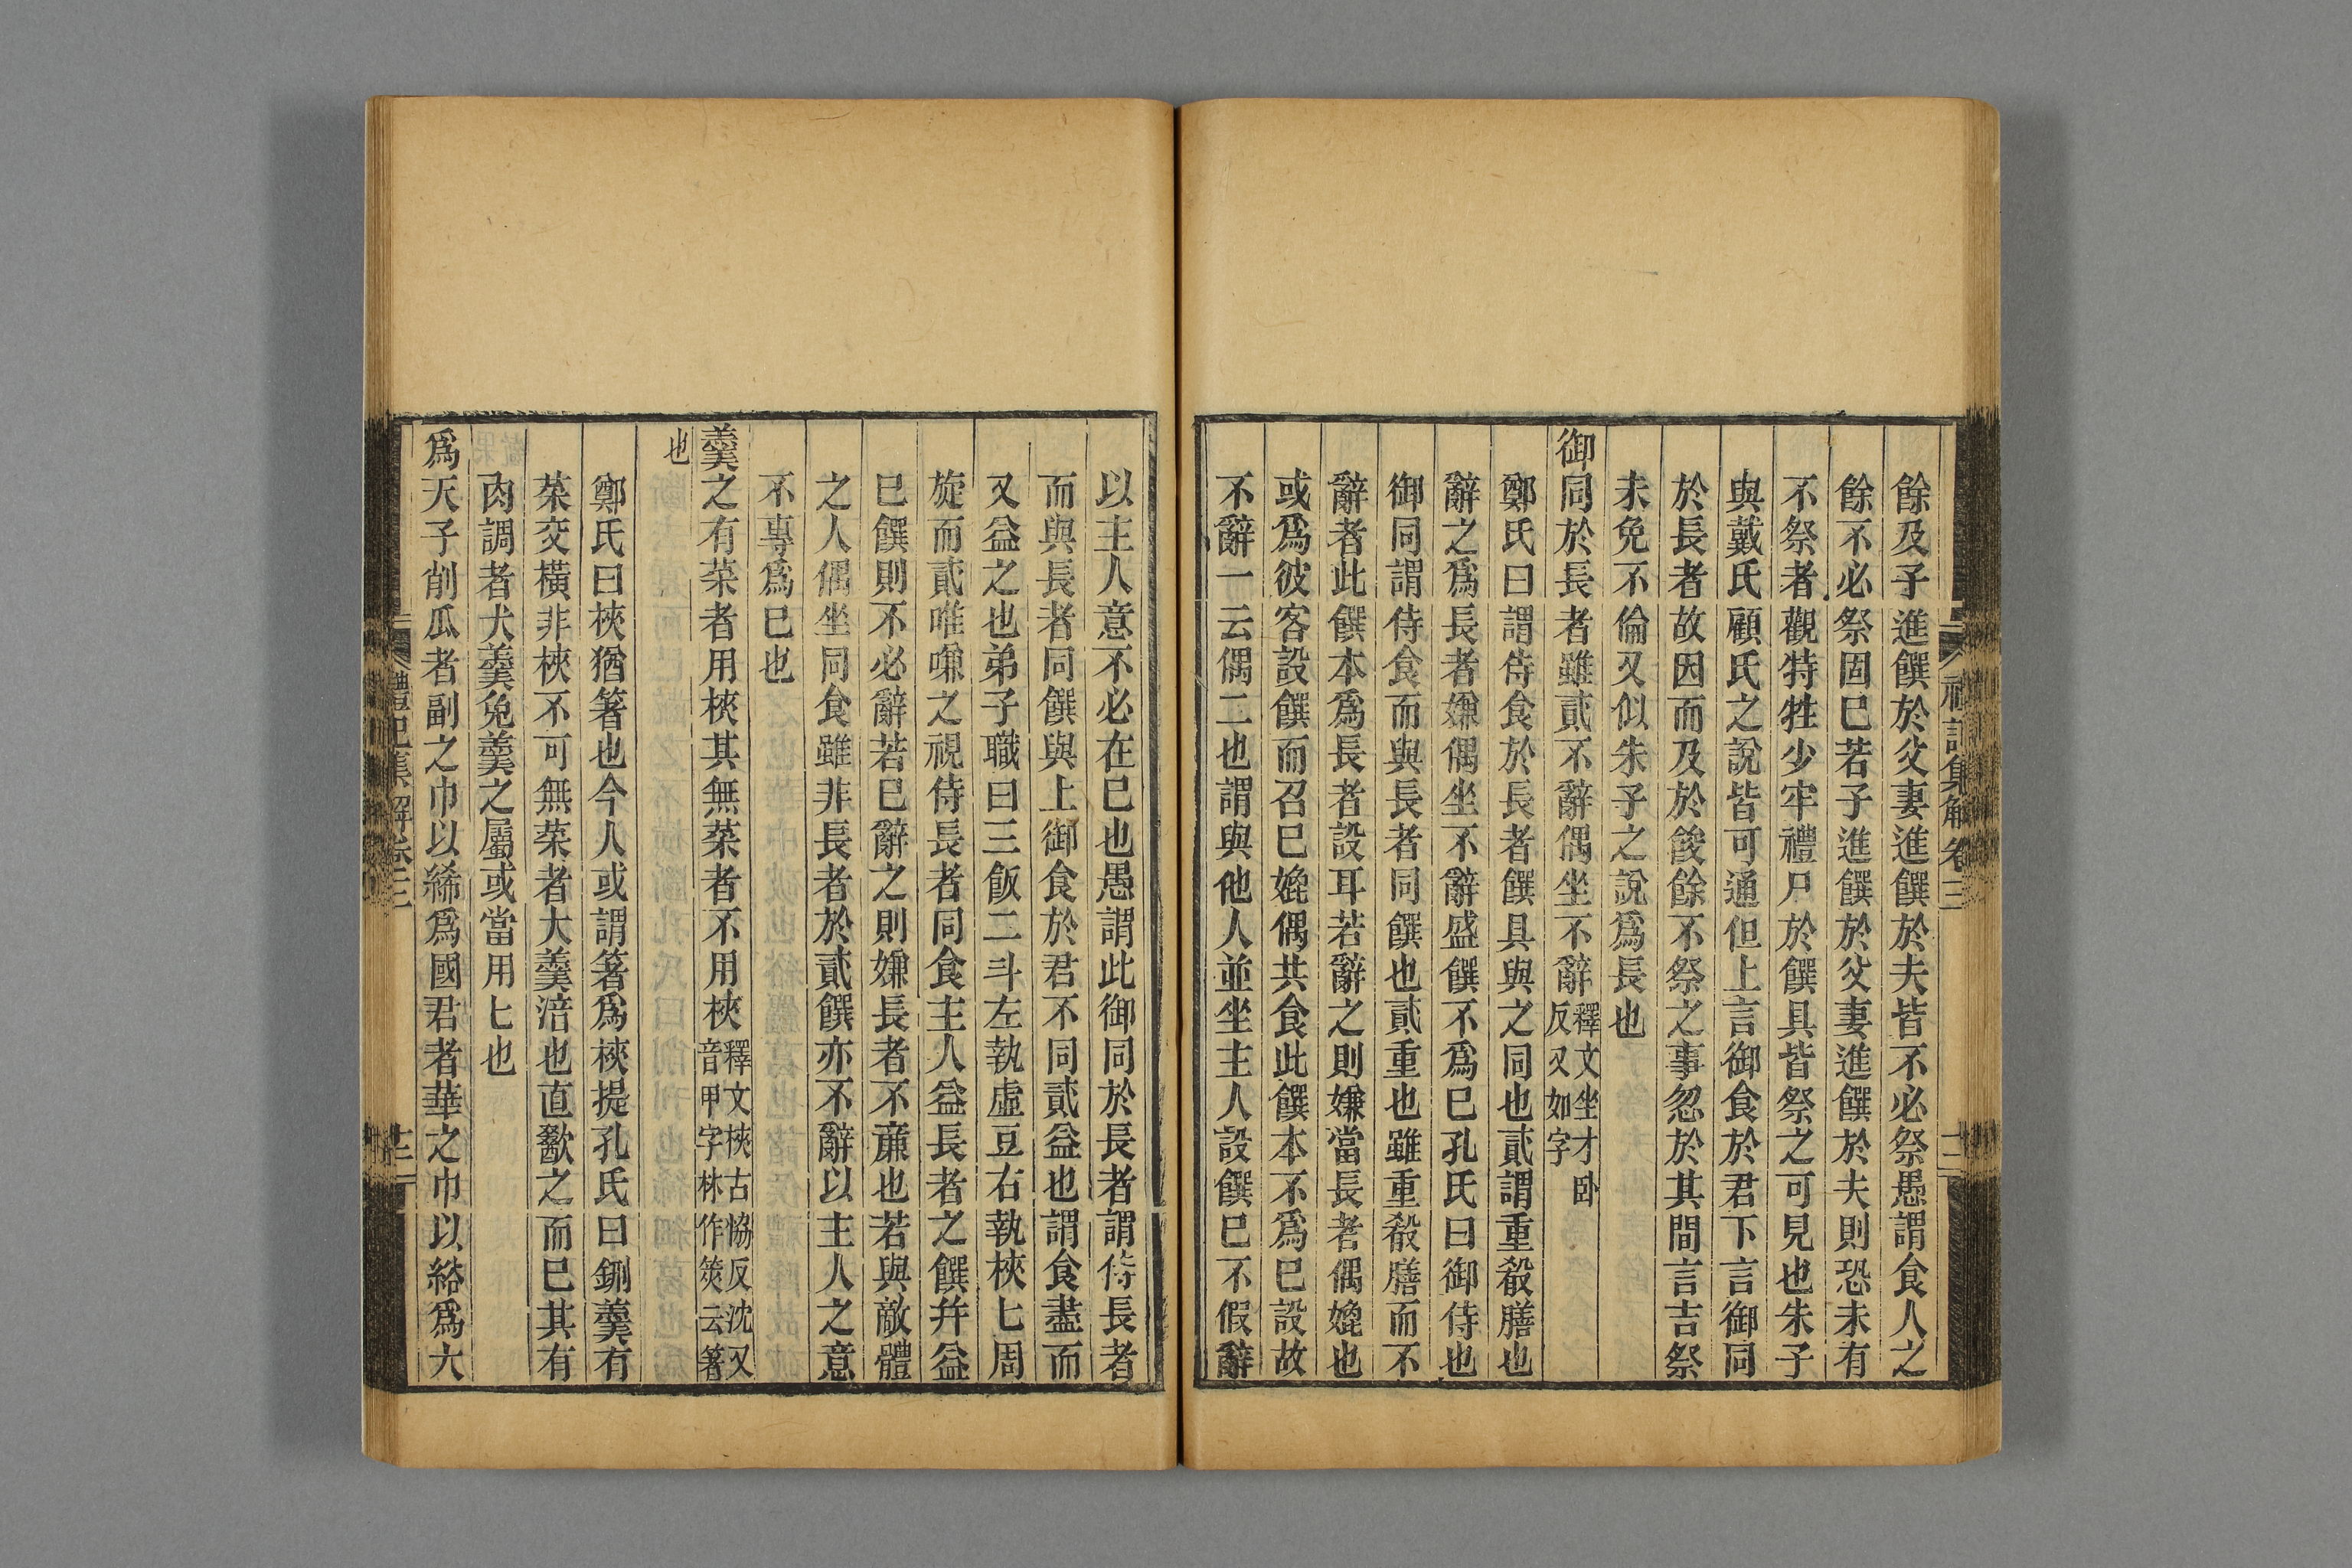 餘及子進饌於父妻進饌於夫皆不必祭愚謂食人之
餘不必祭固已若子進饌於父妻進饌於夫則恐未有
不祭者觀特牲少牢禮尸於饌具皆祭之可見也朱子
與戴氏顧氏之說皆可通但上言御食於君下言御同
於長者故因而及於餕餘不祭之事忽於其間言吉祭
未免不倫又似朱子之說爲長也
御同於長者雖貳不辭偶坐不辭釋文坐才卧
反又如字
鄭氏曰謂侍食於長者饌具與之同也貳謂重殽膳也
辭之爲長者嫌偶坐不辭盛饌不爲已孔氏曰御侍也
御同謂侍食而與長者同饌也貳重也雖重殽膳而不
辭者此饌本爲長者設耳若辭之則嫌當長者偶媲也
或爲彼客設饌而召已媲偶共食此饌本不爲已設故
不辭一云偶二也謂與他人並坐主人設饌已不假辭
以主人意不必在已也愚謂此御同於長者謂侍長者
而與長者同饌與上御食於君不同貳益也謂食盡而
又益之也弟子職曰三飯二斗左執虛豆右執梜匕周
旋而貳唯嗛之視侍長者同食主人益長者之饌幷益
已饌則不必辭若已辭之則嫌長者不亷也若與敵體
之人偶坐同食雖非長者於貳饌亦不辭以主人之意
不專爲已也
羹之有菜者用梜其無菜者不用梜釋文梜古協反沈又
音甲字林作筴云箸
也
鄭氏曰梜猶箸也今人或謂箸爲梜提孔氏曰鉶羹有
菜交橫非梜不可無菜者大羹湆也直歠之而已其有
肉調者犬羹兔羹之屬或當用匕也
爲天子削瓜者副之巾以絺爲國君者華之巾以綌爲大
禮記集解卷三